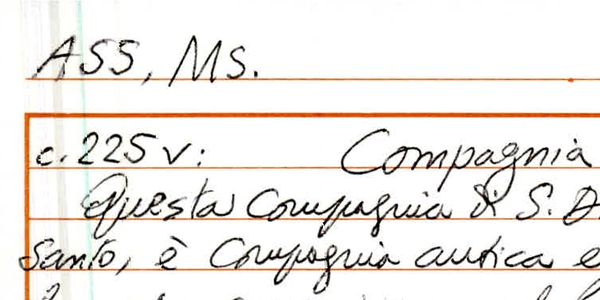 ASS, Ms.
c. 225 v: Compagnia
Questa Compagnia di S. D.
Santo, è Compagnia antica e